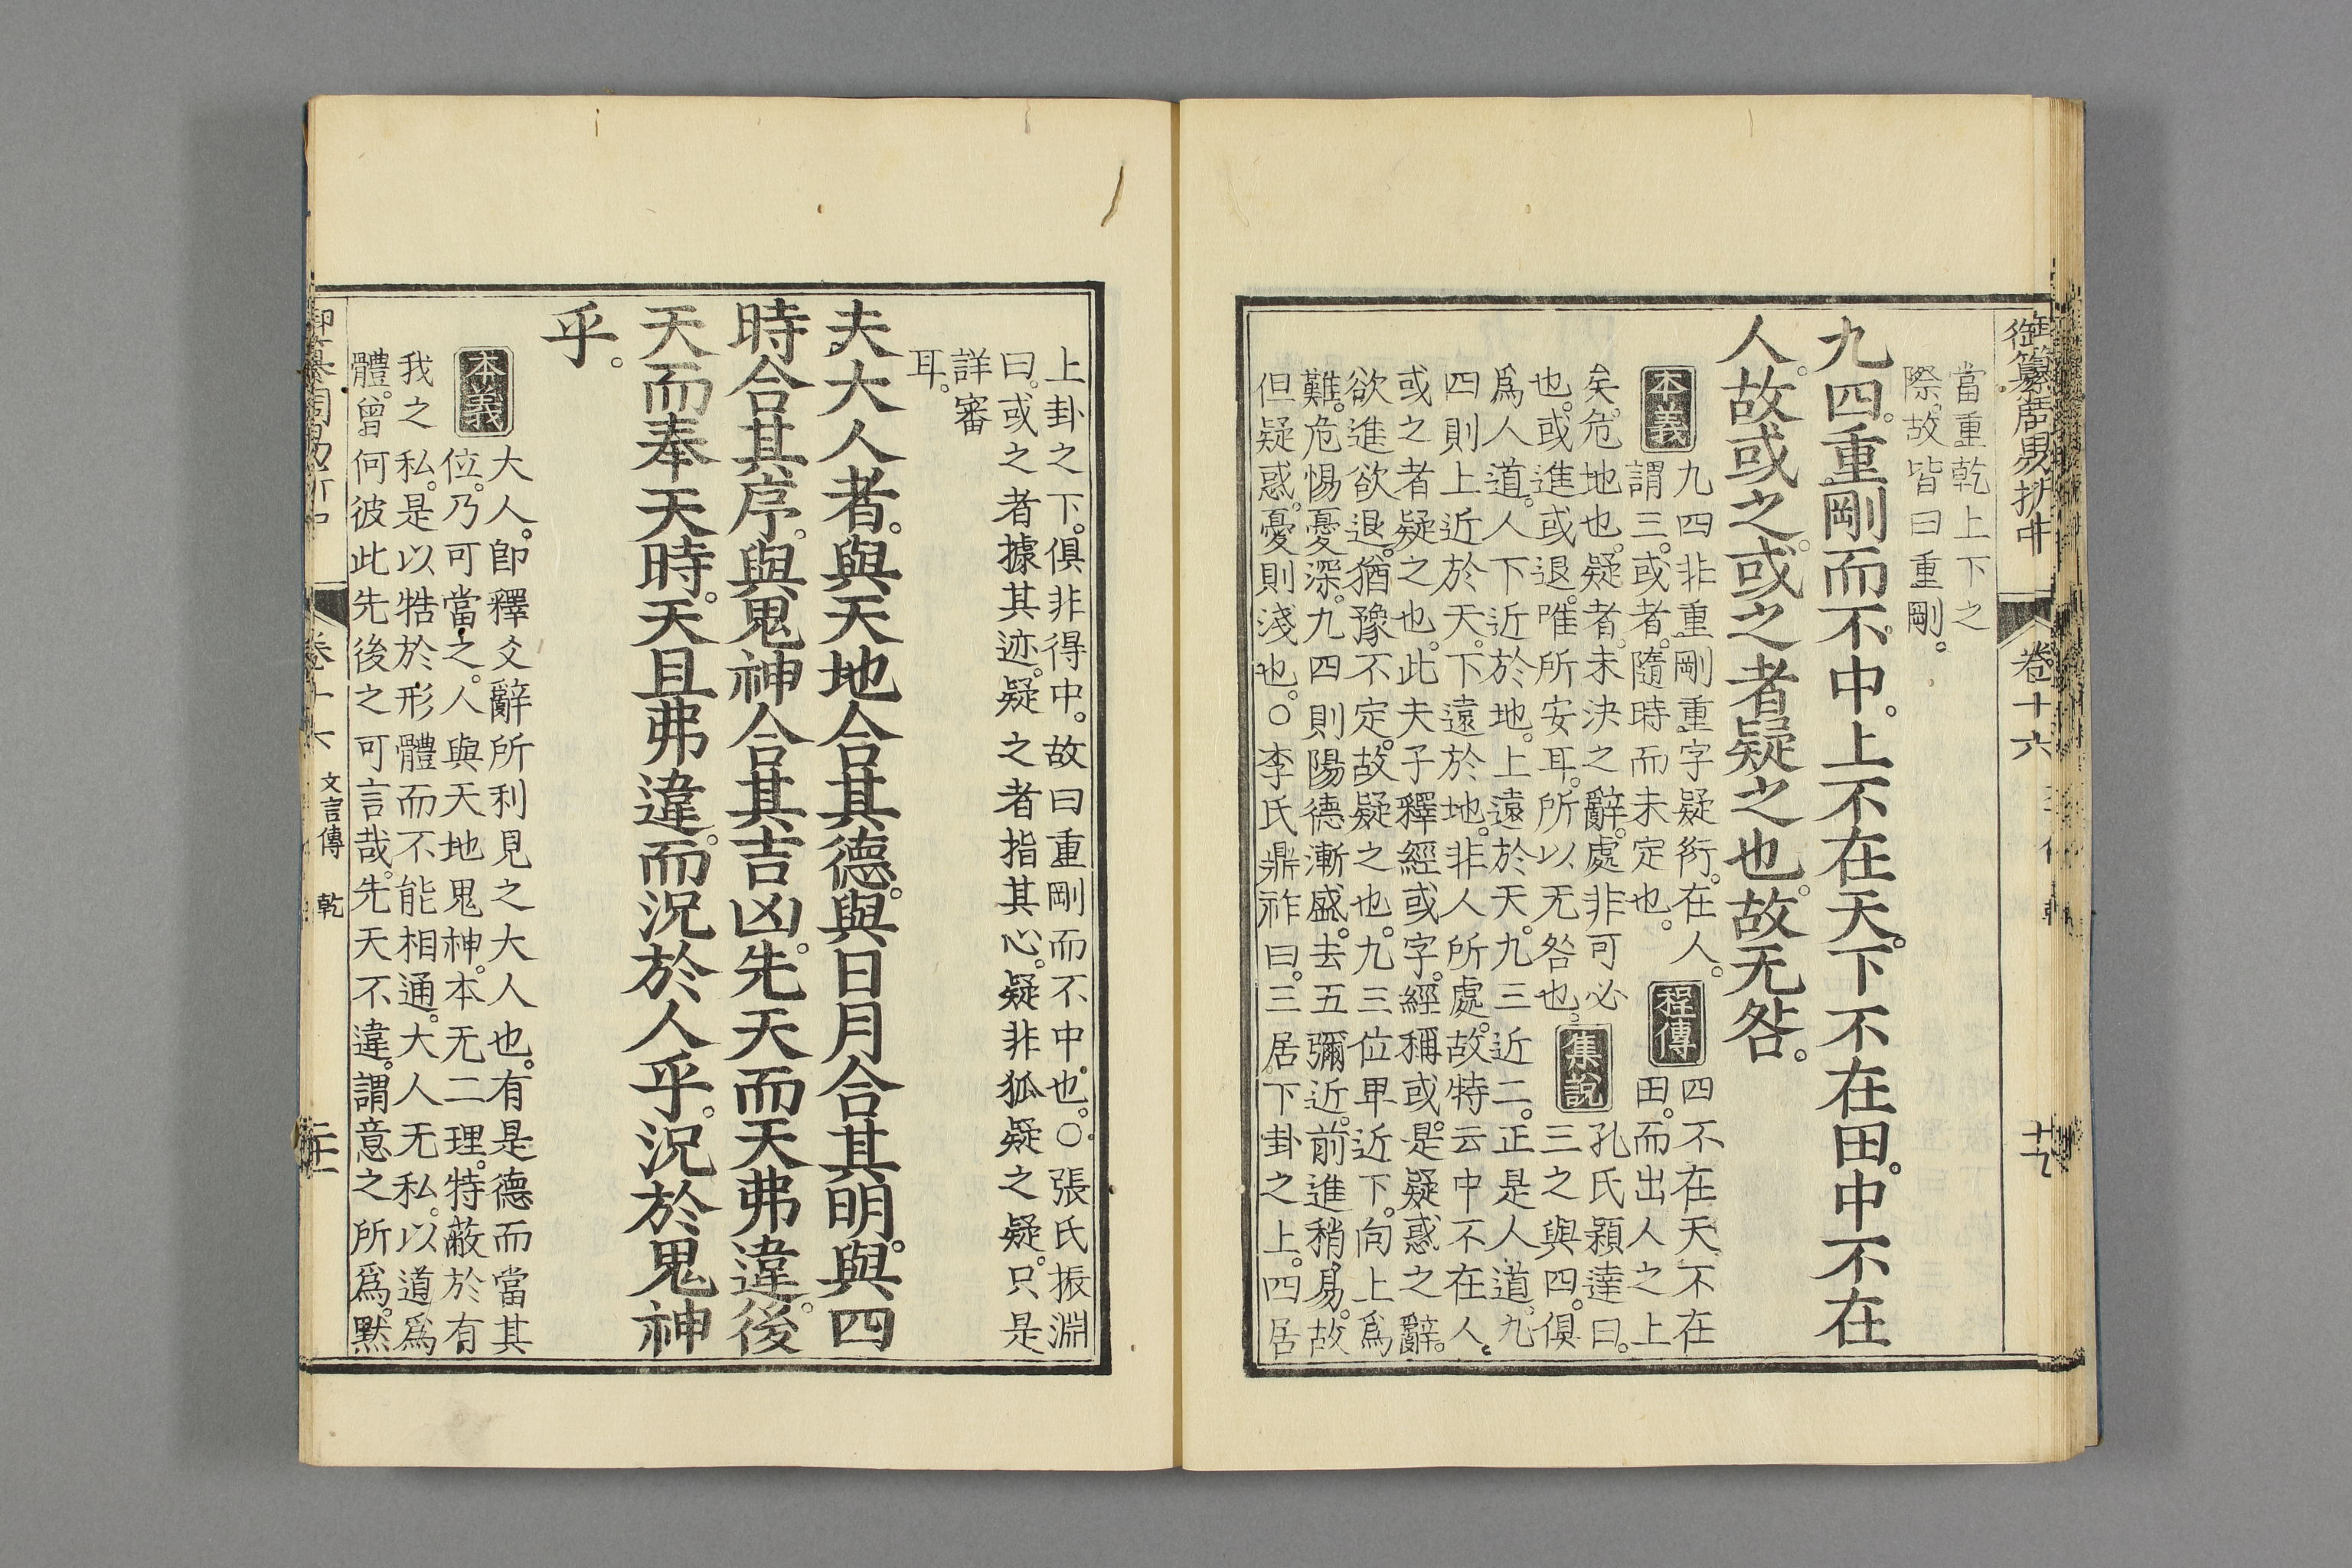 御纂周易折中 卷十六 十九
當重乾上下之
際。故皆曰重剛。
九四。重剛而不中。上不在天。下不在田。中不在
人。故或之。或之者疑之也。故无咎。
本義
九四非重剛。重字疑衍。在人。
謂三。或者。隨時而未定也。
程傳
四不在天。不在
田。而出人之上
矣。危地也。疑者。未決之辭。處非可必
也。或進或退。唯所安耳。所以无咎也。
集說
孔氏穎達曰。
三之與四。俱
爲人道。人下近於地。上遠於天。九三近二。正是人道。九
四則上近於天。下遠於地。非人所處。故特云中不在人。
或之者疑之也。此夫子釋經或字。經稱或。是疑惑之辭。
欲進欲退。猶豫不定。故疑之也。九三位卑近下。向上爲
難。危惕憂深。九四則陽德漸盛。去五彌近。前進稍易。故
但疑惑。憂則淺也。○李氏鼎祚曰。三居下卦之上。四居
上卦之下。俱非得中。故曰重剛而不中也。○張氏振淵
曰。或之者據其迹。疑之者指其心。疑非狐疑之疑。只是
詳審
耳。
夫大人者。與天地合其德。與日月合其明。與四
時合其序。與鬼神合其吉凶。先天而天弗違。後
天而奉天時。天且弗違。而況於人乎。況於鬼神
乎。
本義
大人。卽釋爻辭所利見之大人也。有是德而當其
位。乃可當之。人與天地鬼神。本无二理。特蔽於有
我之私。是以牿於形體而不能相通。大人无私。以道爲
體。曾何彼此先後之可言哉。先天不違。謂意之所爲。默
御纂周易折中 卷十六 文言傳 乾 二十